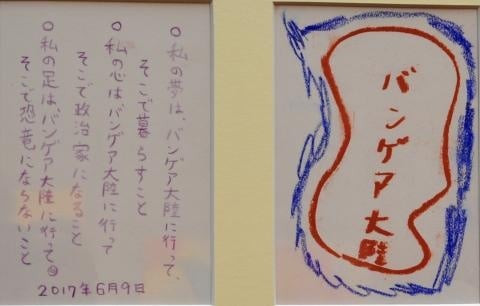 ○私の夢は、バンゲア大陸に行って、
そこで暮らすこと
○私の心はバンゲア大陸に行って
そこで政治家になること
○私の足は、バンゲア大陸に行って
そこで恐竜にならないこと
2017年6月9日
バンゲア大陸